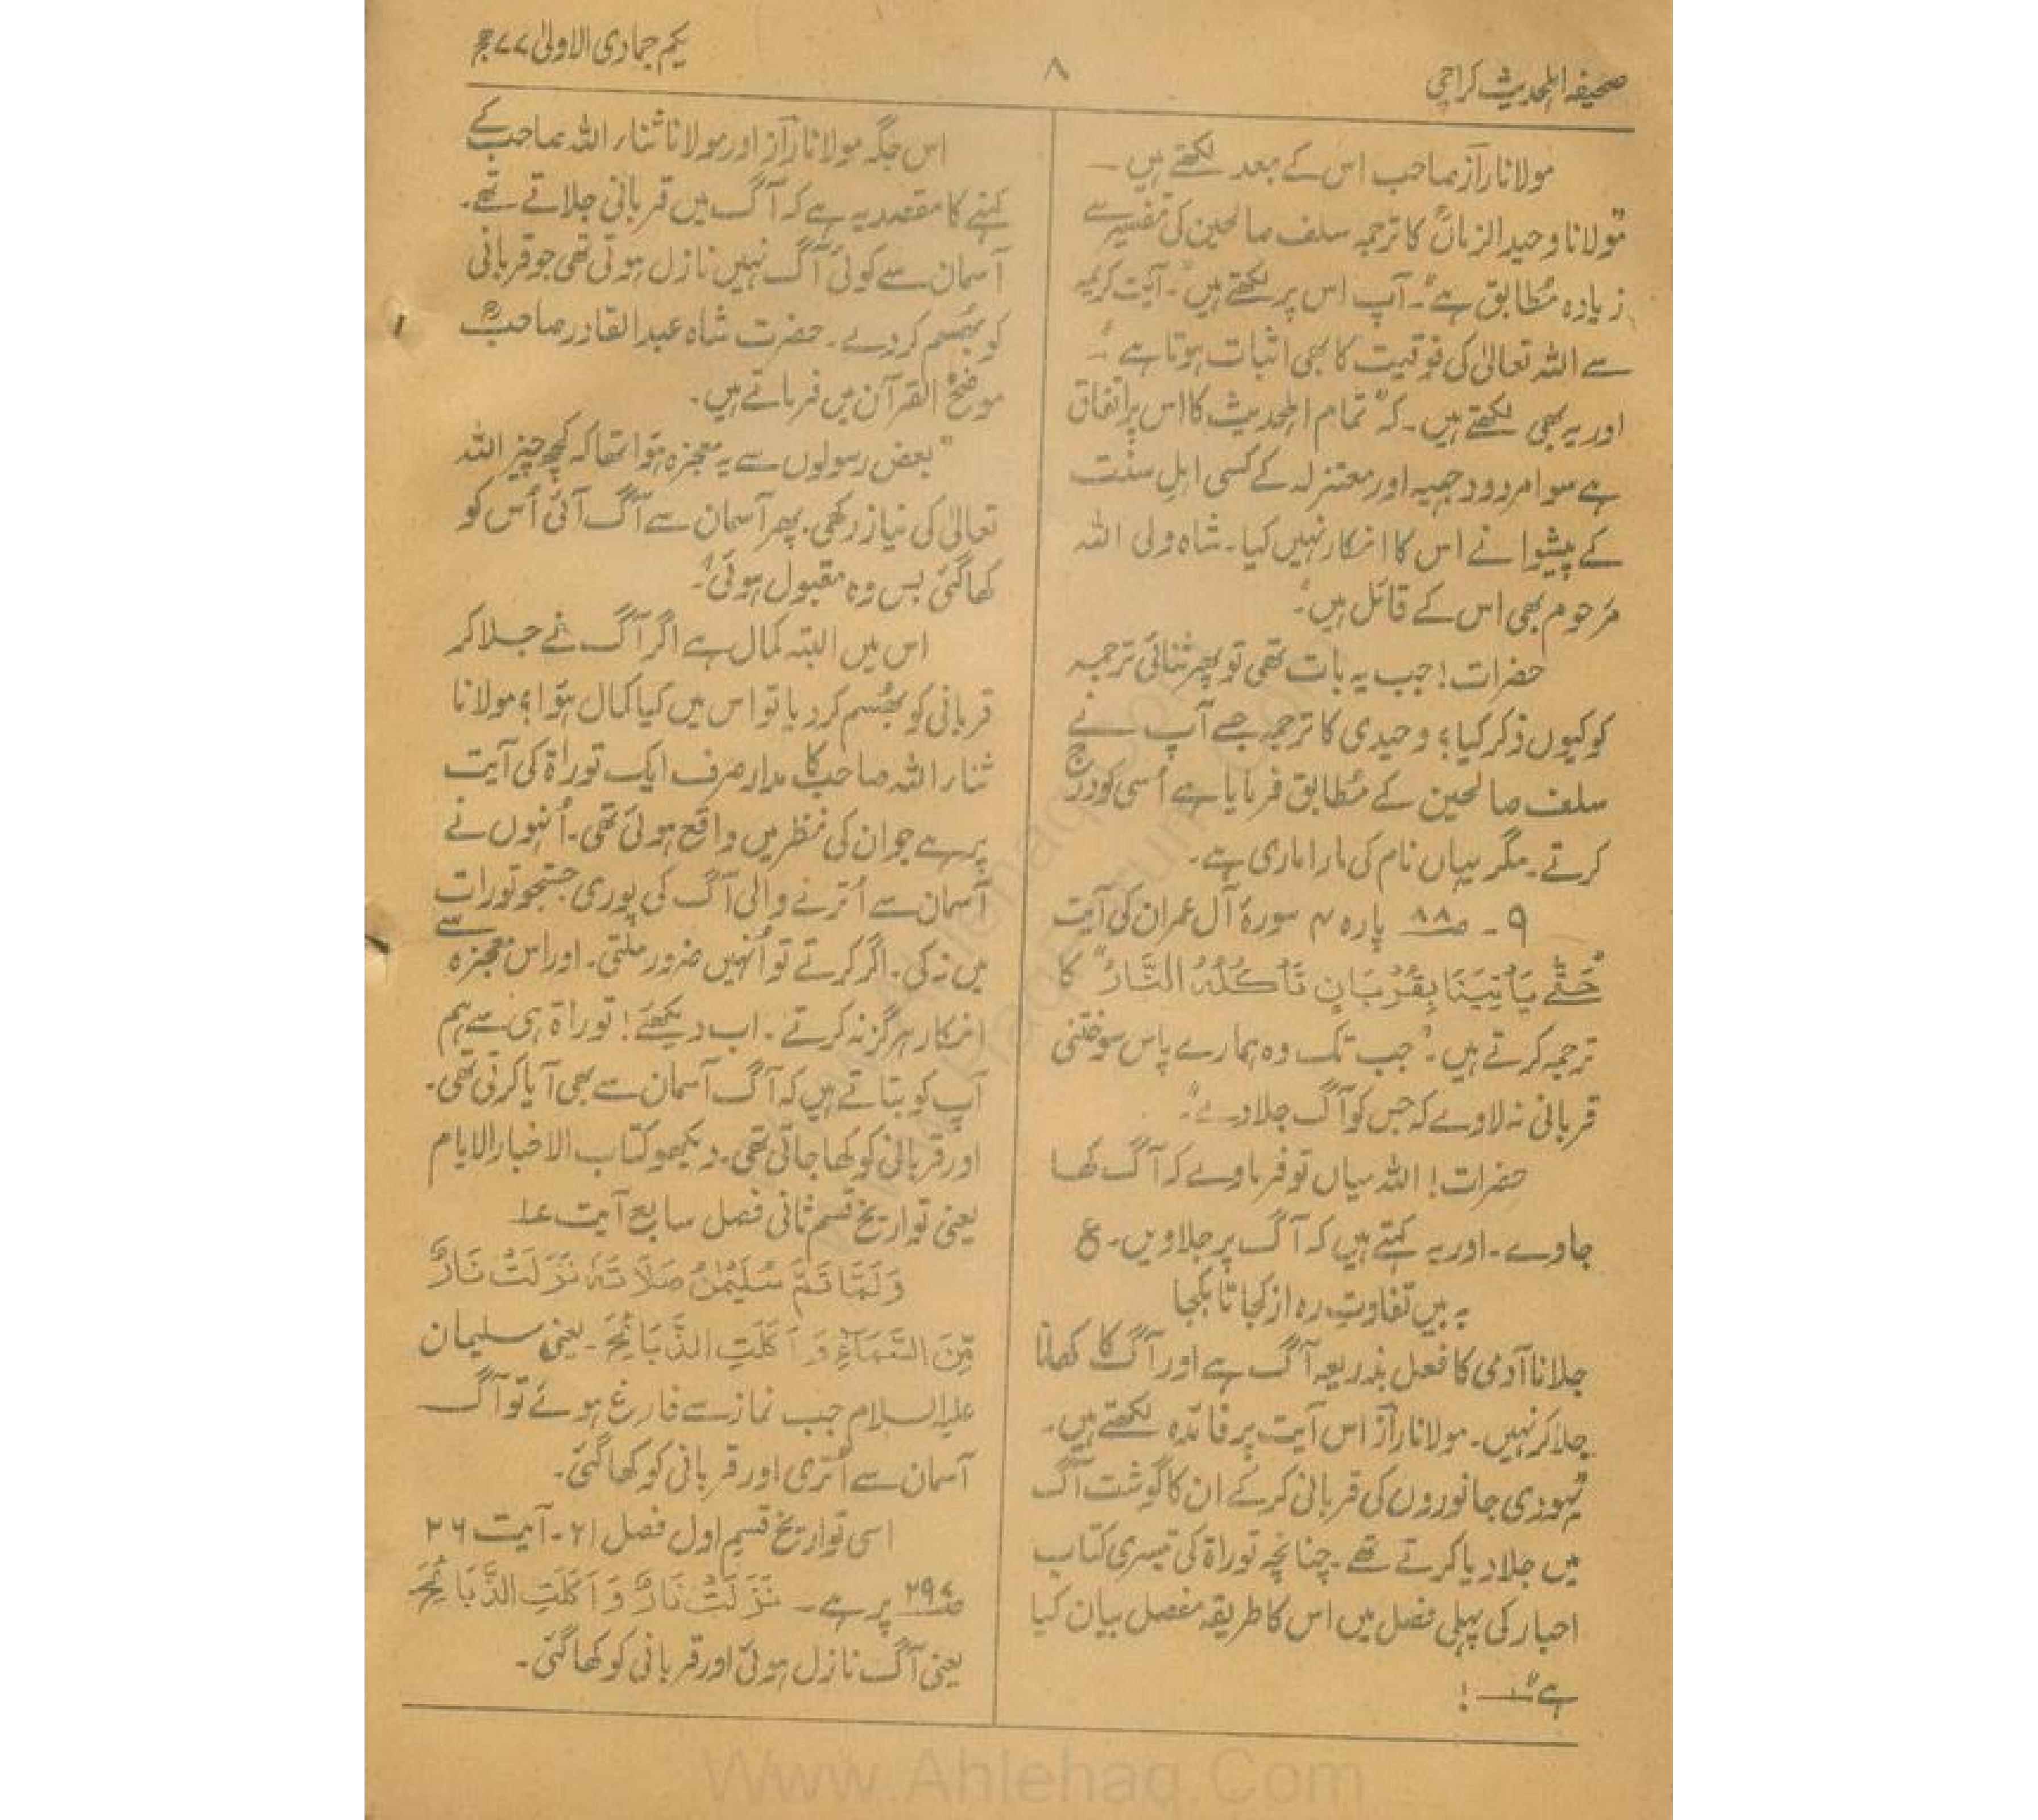 صحیفہ اہلحدیث کراچی
۸
یکم جمادی الاولیٰ ۷۷ھ
مولانا رآز صاحب اس کے بعد لکھتے ہیں۔
"مولانا وحید الزماںؒ کا ترجمہ سلف صالحین کی تفسیر سے
زیادہ مُطابق ہے"۔ آپ اس پر لکھتے ہیں"۔ آیت کریمہ
سے اللہ تعالیٰ کی فوقیت کا بھی اثبات ہوتا ہے"۔
اور یہ بھی لکھتے ہیں۔ کہ "تمام اہلحدیث کا اس پر اتفاق
ہے سوا مردود جہمیہ اور معتزلہ کے کسی اہلِ سنت
کے پیشوا نے اس کا انکار نہیں کیا۔ شاہ ولی اللہ
مرحوم بھی اس کے قائل ہیں"۔
حضرات! جب یہ بات تھی تو پھر ثنائی ترجمہ
کو کیوں ذکر کیا؟ وحیدی کا ترجمہ جسے آپ نے
سلف صالحین کے مُطابق فرمایا ہے اُسی کو درج
کرتے۔ مگر یہاں نام کی مارا ماری ہے۔
۹۔ صـ۸۸ پارہ ۴ سورۂ آل عمران کی آیت
"حَتّٰی یَأْتِیَنَا بِقُرْبَانٍ تَأْكُلُهُ النَّارُ" کا
ترجمہ کرتے ہیں۔ "جب تک وہ ہمارے پاس سوختنی
قربانی نہ لاوے کہ جس کو آگ جلا دے"۔
حضرات! اللہ میاں تو فرماوے کہ آگ کھا
جاوے۔ اور یہ کہتے ہیں کہ آگ پر جلاویں۔ ع
بہ بیں تفاوتِ رہ از کجا تا بکجا
جلانا آدمی کا فعل بذریعہ آگ ہے اور آگ کا کھانا
جلا کر نہیں۔ مولانا رآز اس آیت پر فائدہ لکھتے ہیں۔
"یہودی جانوروں کی قربانی کر کے ان کا گوشت آگ
میں جلا دیا کرتے تھے۔ چنانچہ توراۃ کی تیسری کتاب
احبار کی پہلی فصل میں اس کا طریقہ مفصل بیان کیا
ہے" ـــ !
اس جگہ مولانا رآز اور مولانا ثناء اللہ صاحب کے
کہنے کا مقصد یہ ہے کہ آگ میں قربانی جلاتے تھے۔
آسمان سے کوئی آگ نہیں نازل ہوتی تھی جو قربانی
کو بھسم کر دے۔ حضرت شاہ عبدالقادر صاحبؒ
موضح القرآن میں فرماتے ہیں۔
"بعض رسولوں سے یہ معجزہ ہوا تھا کہ کچھ چیز اللہ
تعالیٰ کی نیاز رکھی۔ پھر آسمان سے آگ آئی اُس کو
کھا گئی بس وہ مقبول ہوئی"۔
اس میں البتہ کمال ہے اگر آگ نے جلا کر
قربانی کو بھسم کر دیا تو اس میں کیا کمال ہوا؟ مولانا
ثناء اللہ صاحب کا مدار صرف ایک توراۃ کی آیت
پر ہے جو ان کی نظر میں واقع ہوئی تھی۔ اُنہوں نے
آسمان سے اُترنے والی آگ کی پوری جستجو تورات
میں نہ کی۔ اگر کرتے تو اُنہیں ضرور ملتی۔ اور اس معجزہ سے
انکار ہرگز نہ کرتے۔ اب دیکھئے! توراۃ ہی سے ہم
آپ کو بتاتے ہیں کہ آگ آسمان سے بھی آیا کرتی تھی۔
اور قربانی کو کھا جاتی تھی۔ دیکھو کتاب الاخبار الایام
یعنی تواریخ قسم ثانی فصل سابع آیت ۱
وَلَمَّا تَمَّ سُلَیْمٰنُ صَلَاتَهٗ نَزَلَتْ نَارٌ
مِّنَ السَّمَاءِ وَ اَكَلَتِ الذَّبَائِحَ۔ یعنی سلیمان
علیہ السلام جب نماز سے فارغ ہوئے تو آگ
آسمان سے اُتری اور قربانی کو کھا گئی۔
اسی تواریخ قسم اول فصل ۲۱۔ آیت ۲۶
پر ہے۔ نَزَلَتْ نَارٌ وَ اَكَلَتِ الذَّبَائِحَ
یعنی آگ نازل ہوئی اور قربانی کو کھا گئی۔
Www.Ahlehaq.Com